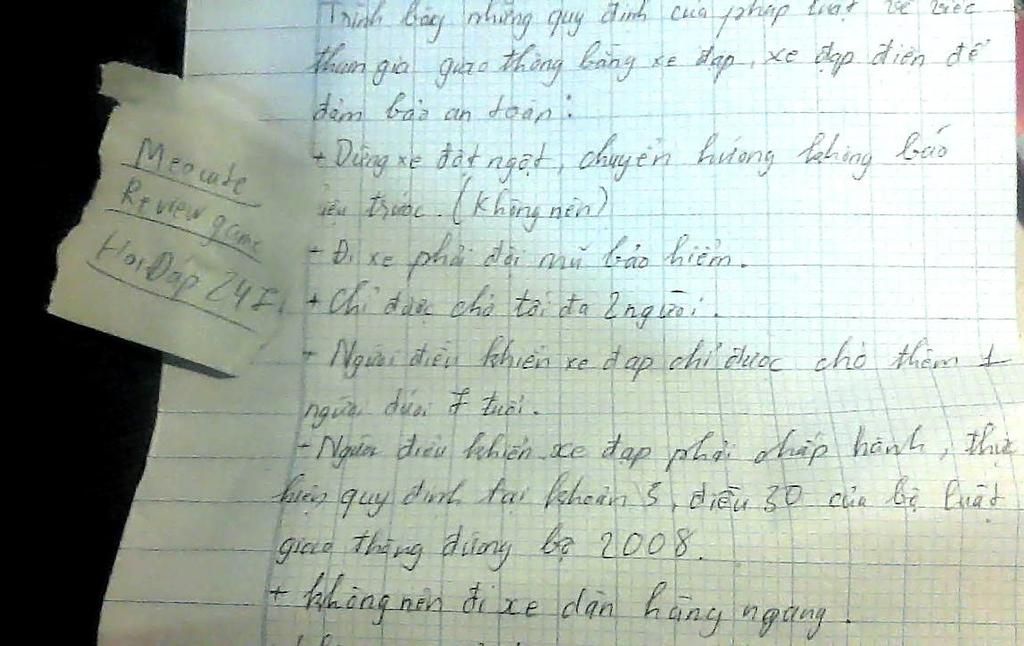 Trình bày những quy định của pháp luật về việc
tham gia giao thông bằng xe đạp, xe đạp điện để
đảm bảo an toàn:
+ Dừng xe đột ngột, chuyển hướng không báo
trước. (không nên)
+ Đi xe phải đội mũ bảo hiểm.
+ Chỉ được chở tối đa 2 người.
+ Người điều khiển xe đạp chỉ được chở thêm 1
người dưới 7 tuổi.
+ Người điều khiển xe đạp phải chấp hành, thực
hiện quy định tại khoản 3, điều 30 của bộ luật
giao thông đường bộ 2008.
+ không nên đi xe dàn hàng ngang.
Meocute
Review game
Hỏi Đáp 24